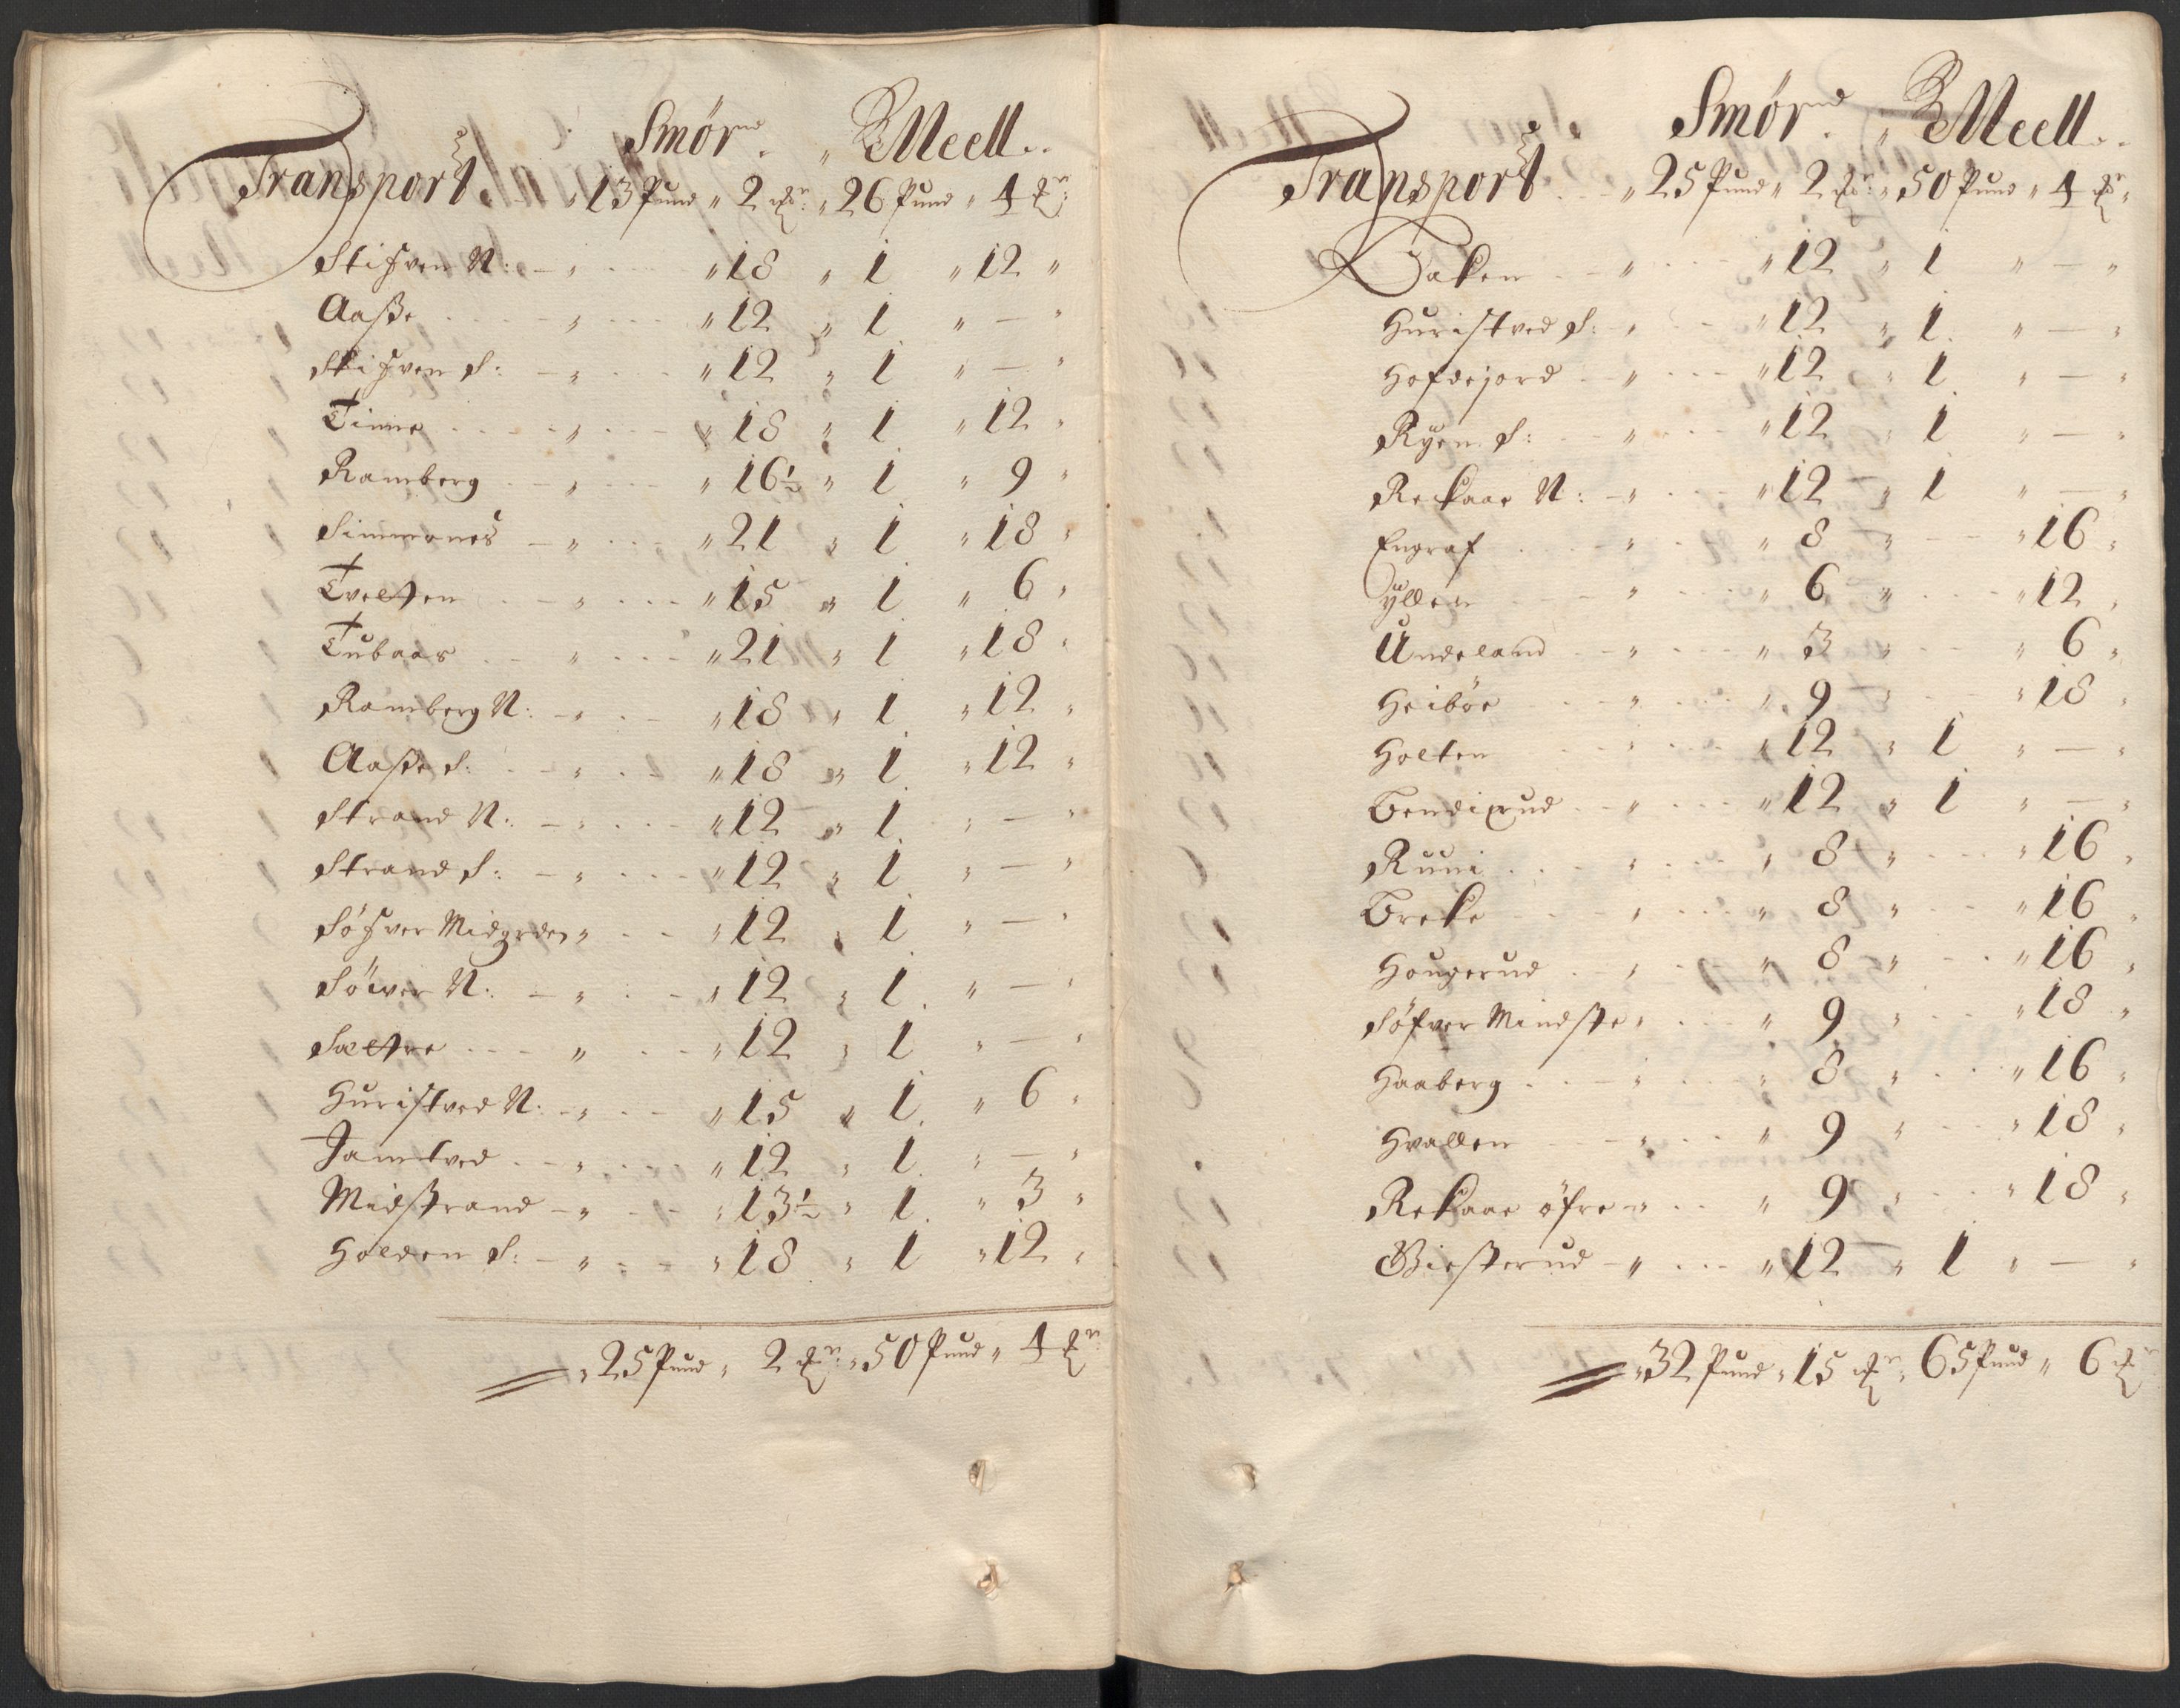 Smør. " Meell.
Transport. " 13 Pund " 2 ℔r: " 26 Pund " 4 ℔r:
Stifven N: - " 18 " 1 " 12 "
Aasße " 12 " 1 " — "
Stifven S: - " 12 " 1 " — "
Tinne " 18 " 1 " 12 "
Ramberg " 16½ " 1 " 9 "
Simmenes - " 21 " 1 " 18 "
Tvelten " 15 " 1 " 6 "
Tubaas " 21 " 1 " 18 "
Ramberg N: - " 18 " 1 " 12 "
Aaste S: " 18 " 1 " 12 "
Strand N: - " 12 " 1 " — "
Strand S: - " 12 " 1 " — "
Söfver Midgrden " 12 " 1 " — "
Söwer N: - " 12 " 1 " — "
Sæltre " 12 " 1 " — "
Huristved N: - " 15 " 1 " 6 "
Jamtved " 12 " 1 " — "
Midstrand - " 13½ " 1 " 3 "
Holden S: - " 18 " 1 " 12 "
" 25 Pund " 2 ℔r: " 50 Pund " 4 ℔r:
Smør. " Meell.
Transport " 25 Pund " 2 ℔r: " 50 Pund " 4 ℔r "
Baken " 12 " 1 " — "
Huristved S: - " 12 " 1 " — "
Hofdejord " 12 " 1 " — "
Ryen S: " 12 " 1 " — "
Rekaae N: - " 12 " 1 " — "
Engraf " 8 " 16 "
Gyllen " 6 " 12 "
Undeland " 3 " 6 "
Heiböe " 9 " 18 "
Holten " 12 " 1 " — "
Bendixrud " 12 " 1 " — "
Runi " 8 " 16 "
Breke " 8 " 16 "
Hougerud " 8 " 16 "
Söfver Mindste " 9 " 18 "
Haaberg " 8 " 16 "
Hvallen " 9 " 18 "
Rekaae öfre " 9 " 18 "
Giesterud - " 12 " 1 " — "
" 32 Pund " 15 ℔r " 65 Pund " 6 ℔r